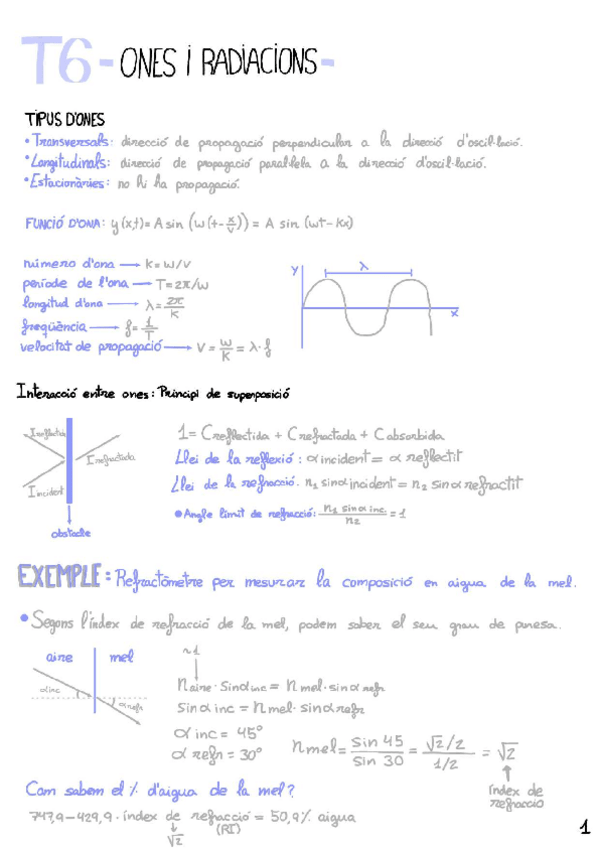 T6 - ONES i RADIACIONS -
TIPUS D'ONES
• Transversals: direcció de propagació perpendicular a la direcció d'oscil·lació.
• Longitudinals: direcció de propagació paral·lela a la direcció d'oscil·lació.
• Estacionàries: no hi ha propagació.
FUNCIÓ D'ONA: y(x,t)= A sin (ω(t-x/v)) = A sin (ωt-Kx)
número d'ona → K=ω/v
període de l'ona → T=2π/ω
longitud d'ona → λ=2π/K
freqüència → f=1/T
velocitat de propagació → V=ω/K=λ·f
y λ x
Interacció entre ones: Principi de superposició
Ireflectida
Irefractada
Iincident
obstacle
1= Creflectida + Crefractada + Cabsorbida
Llei de la reflexió: αincident= α reflectit
Llei de la refracció. n1 sinαincident= n2 sinα refractit
• Angle límit de refracció: n1 sinα inc./n2 = 1
EXEMPLE: Refractòmetre per mesurar la composició en aigua de la mel.
• Segons l'índex de refracció de la mel, podem saber el seu grau de puresa.
aire mel
αinc
α refr
~1
naire· Sinαinc= n mel·sinα refr
sinα inc = n mel·sinα refr
α inc = 45°
α refr = 30°
nmel= sin 45/sin 30 = √2/2/1/2 = √2
índex de
refracció
Com sabem el % d'aigua de la mel?
747,9-429,9·índex de refracció = 50,9% aigua
(RI)
√2
1